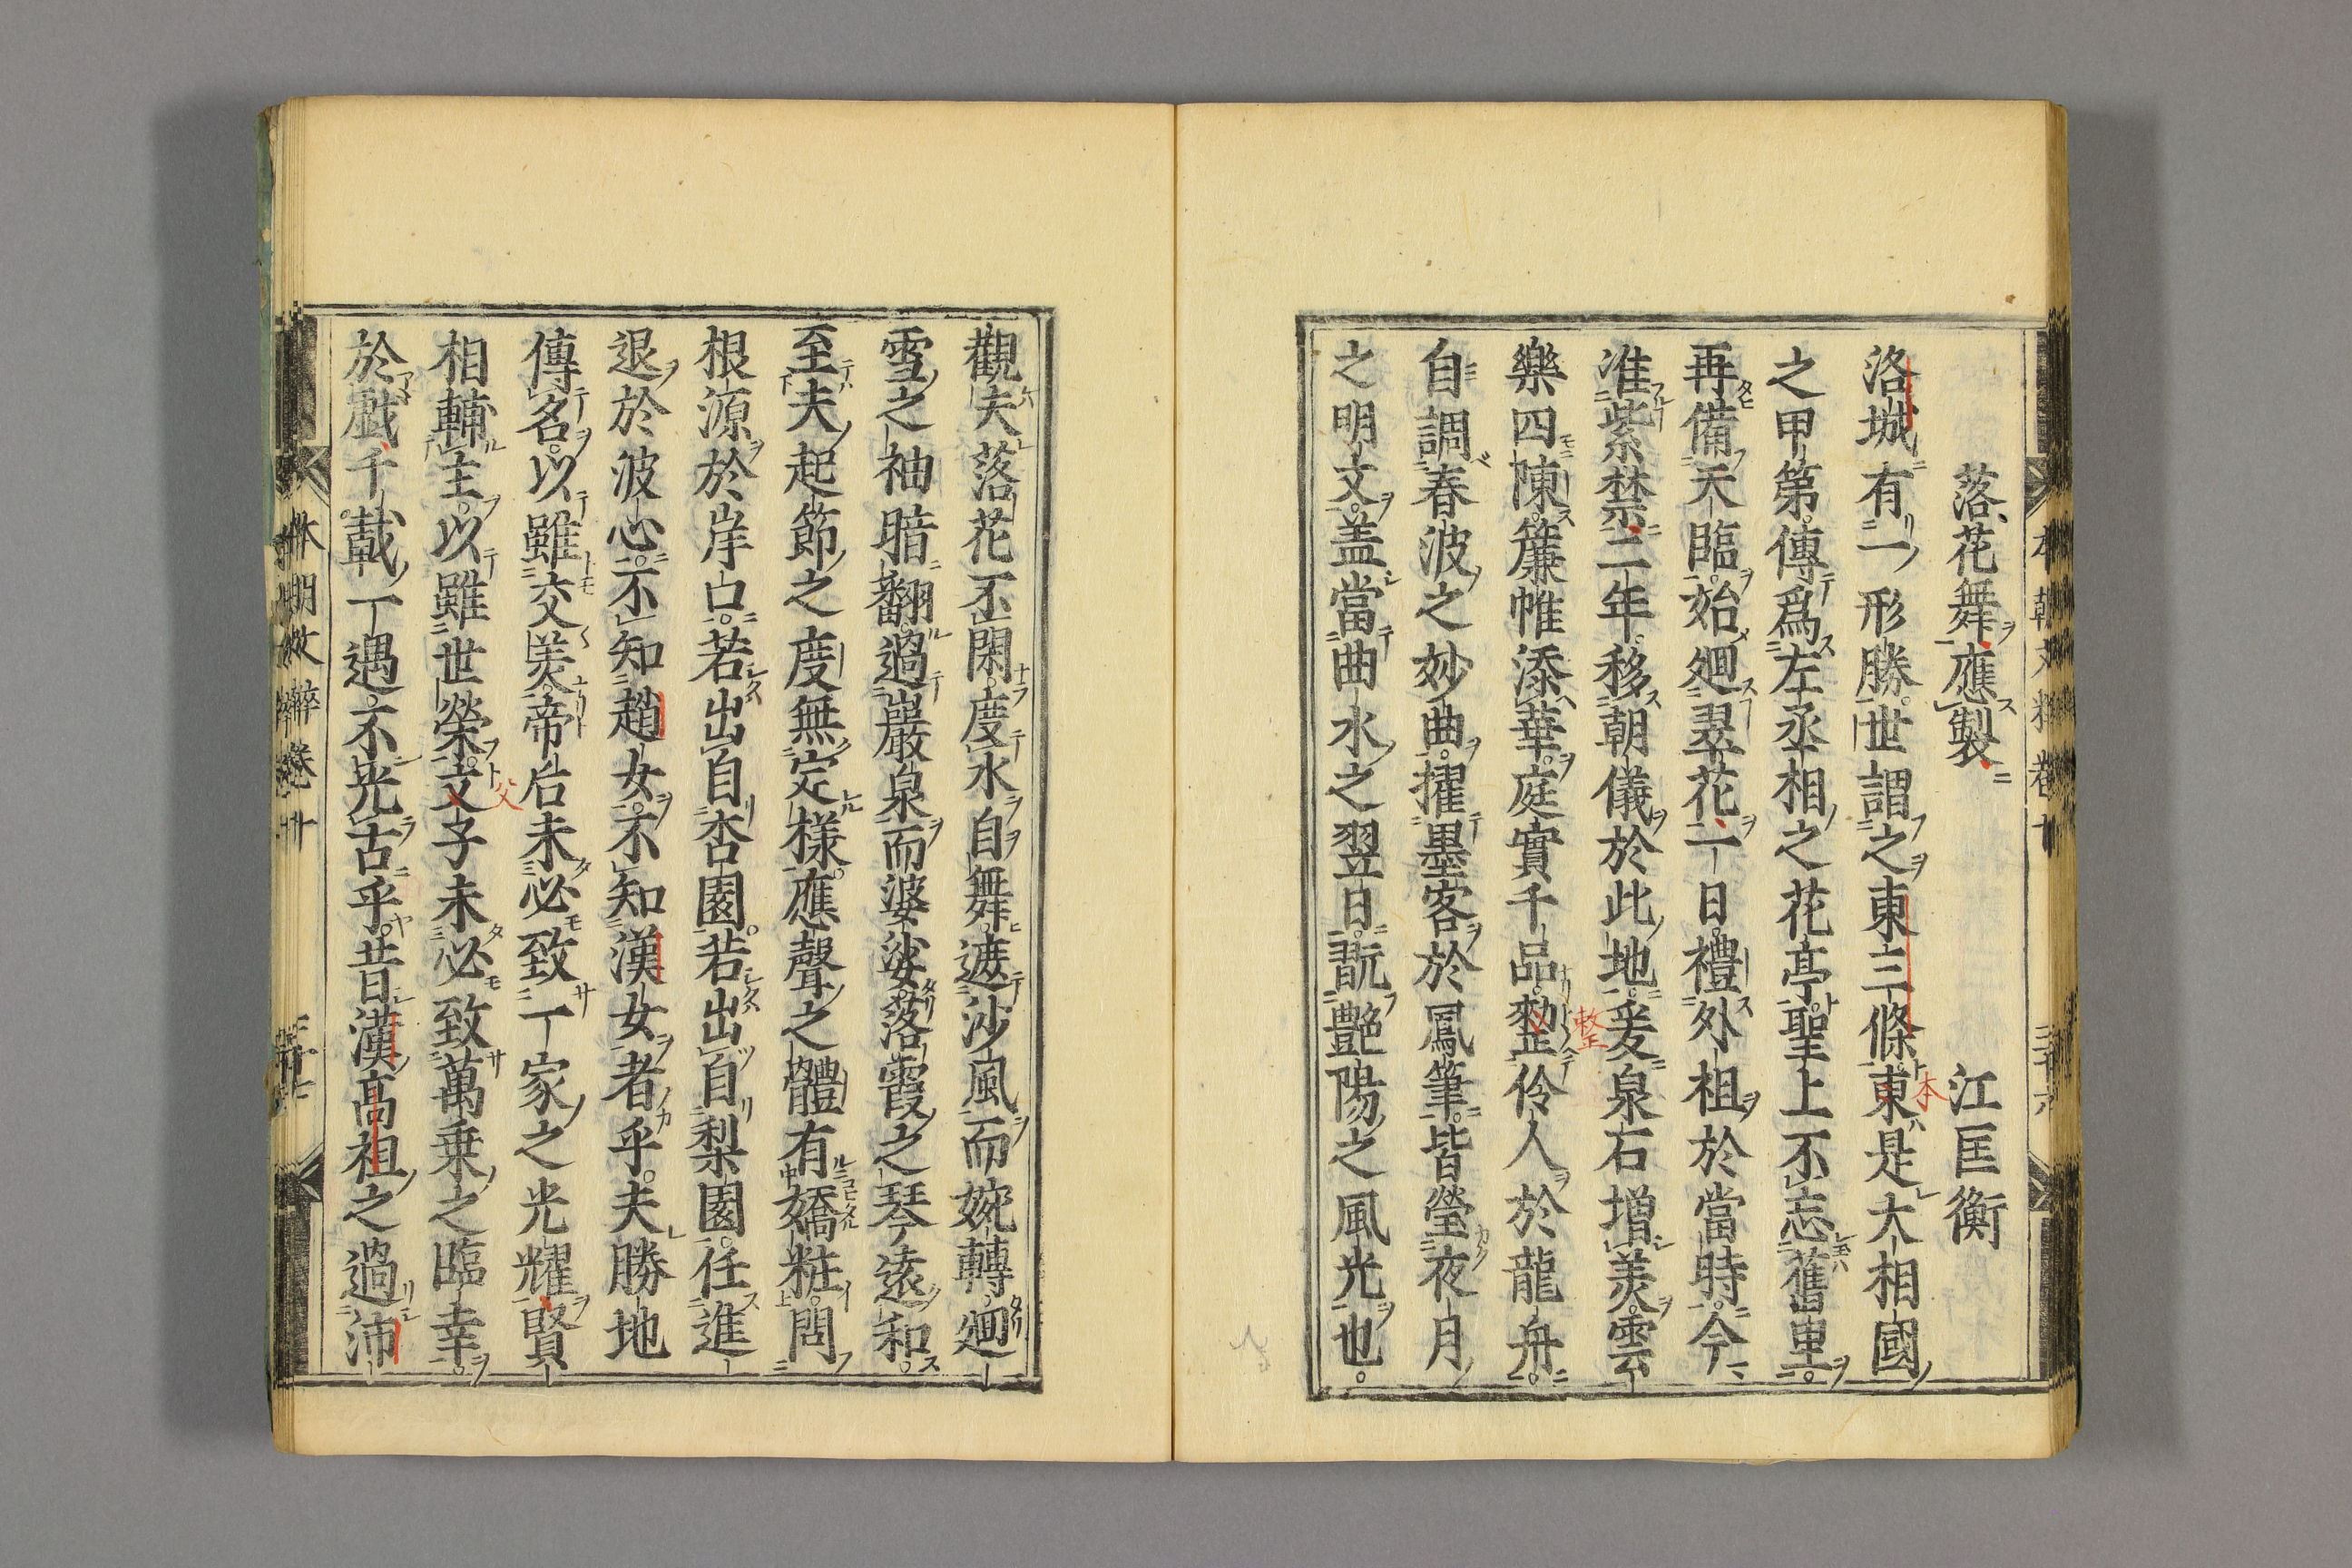 落花舞應製　江匡衡
洛城有一形勝世謂之東三條東是大相國
本
之甲第傳爲左丞相之花亭聖上不忘舊里
再備天臨始廻翠花一日禮外祖於當時今
准紫禁二年移朝儀於此地爰泉石增美雲
整
樂四陳簾帷添華庭實千品整伶人於龍舟
自調春波之妙曲擢墨客於鳳筆皆瑩夜月
之明文蓋當曲水之翌日翫艶陽之風光也
本朝文粹卷十
觀夫落花丕閑度水自舞遮沙風而婉轉廻
雪之袖暗翻過巖泉而婆娑落霞之琴遠和
至夫起節之度無定樣應聲之體有嬌粧問
根源於岸口若出自杏園若出自梨園任進
退於波心不知趙女不知漢女者乎夫勝地
傳名以雖交美帝后未必致一家之光耀賢
父
相輔主以雖世榮文子未必致萬乘之臨幸
於戲千載一遇不光古乎昔漢高祖之過沛
本朝文粹卷十